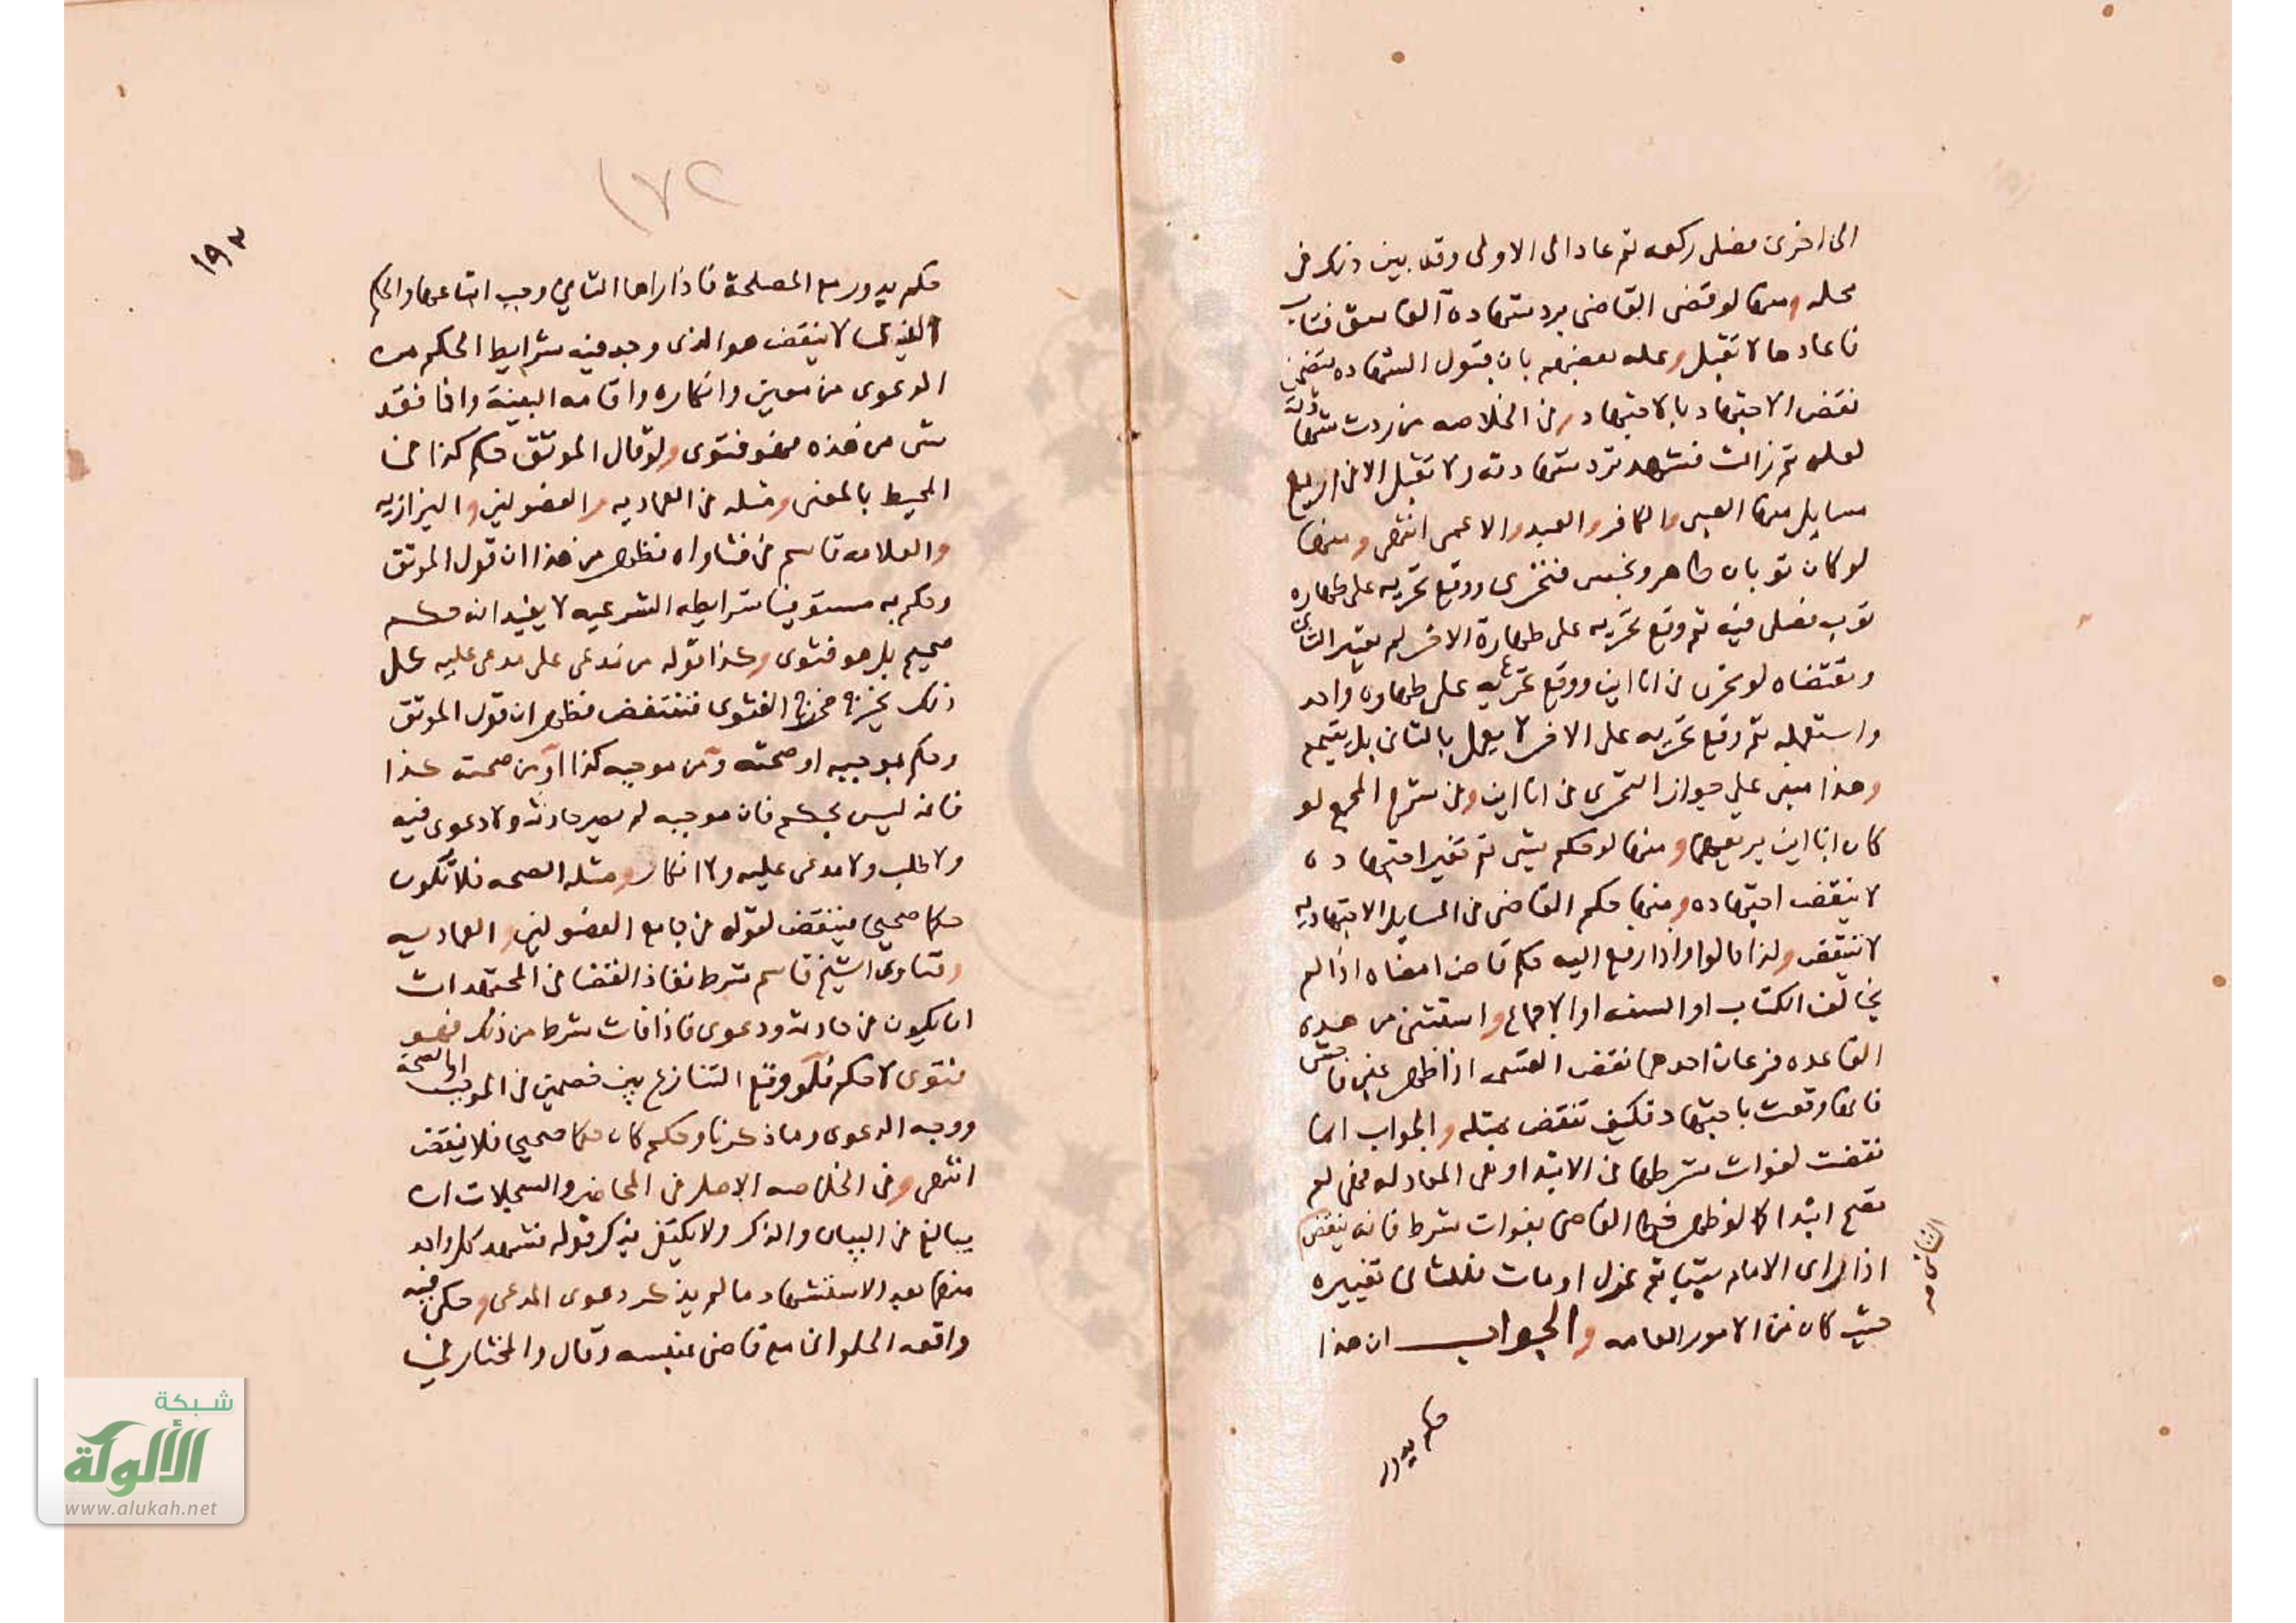 الى اخرى فصلى ركعه ثم عاد الى الاولى وقد بين ذلك فى
محله ومنها لو قضى القاضى برد شهادة الفاسق فتاب
فاعادها لا تقبل وعلله بعضهم بان قبول الشهاده يتضمن
نقض الاجتهاد بالاجتهاد وفى الخلاصه من ردت شهادته
لعله ثم زالت فشهد ترد شهادته ولا تقبل الا فى اربع
مسايل منها الصبى والكافر والعبد والاعمى انتهى ومنها
لو كان ثوبان طاهر ونجس فتحرى ووقع تحريه على طهاره
ثوب فصلى فيه ثم وقع تحريه على طهارة الاخر لم يعتبر الثانى
ومقتضاه لو تحرى فى اناين ووقع تحريه على طهاره واحد
واستعمله ثم وقع تحريه على الاخر لا يعمل بالثانى بل يتيمم
وهذا مبنى على جواز التحرى فى اناين وفى شرح المجمع لو
كان اناين يريقهما ومنها لو حكم بشى ثم تغير اجتهاده
لا ينقض اجتهاده ومنها حكم القاضى فى المسايل الاجتهاديه
لا ينقض ولذا قالوا واذا رفع اليه حكم قاض امضاه اذا لم
يخالف الكتاب او السنه او الاجماع واستثنى من هذه
القاعده فرعان احدهما نقض القسمه اذا ظهر غبن فاحش
فانها وقعت باجتهاد فكيف تنقض بمثله والجواب انها
نقضت لفوات شرطها فى الابتدا وهى المعادله فهى لم
تصح ابتدا كما لو ظهر خطا القاضى بفوات شرط فانه ينقض
الثانى
اذا راى الامام شيا ثم عزل او مات فللثانى تغييره
حيث كان من الامور العامه والجواب ان هذا
حكم يدور
١٧٢
١٩٣
حكم يدور مع المصلحة فاذا راها الثانى وجب اتباعها والحكم
الذى لا ينقض هو الذى وجد فيه شرايط الحكم من
الدعوى من معين وانكاره واقامه البينة واذا فقد
شى من هذه فهو فتوى ولو قال الموثق حكم كذا فى
المحيط بالمعنى ومثله فى العماديه والفصولين والبزازيه
والعلامه قاسم فى فتاواه فظهر من هذا ان قول الموثق
وحكم به مستوفيا شرايطه الشرعيه لا يفيد انه حكم
صحيح بل هو فتوى وكذا قوله من مدعى على مدعى عليه كل
ذلك يخرج مخرج الفتوى فتنتقض فظهر ان قول الموثق
وحكم بموجبه او صحته ومن موجبه كذا او من صحته كذا
فانه ليس بحكم فان موجبه لم يصر حادثه ولا دعوى فيه
ولا طلب ولا مدعى عليه ولا انكار ومثله الصحه فلا تكون
حكما صحيحا فينقض لقوله فى جامع الفصولين والعماديه
وفتاوى الشيخ قاسم شرط نفاذ القضا فى المجتهدات
ان يكون فى حادثه ودعوى فاذا فات شرط من ذلك فهو
فتوى لا حكم فلو وقع التنازع بين خصمين فى الموجب او الصحة
ووجه الدعوى وما ذكرنا وحكم كان حكما صحيحا فلا ينقض
انتهى وفى الخلاصه الاصل فى المحاضر والسجلات ان
يبالغ فى البيان والذكر ولا يكتفى بذكر قوله فشهد كل واحد
منهما بعد الاستشهاد ما لم يذكر دعوى المدعى وحكى فيه
واقعه الحلوانى مع قاضى عنبسه وقال والمختار فى
شبكة
الألوكة
www.alukah.net